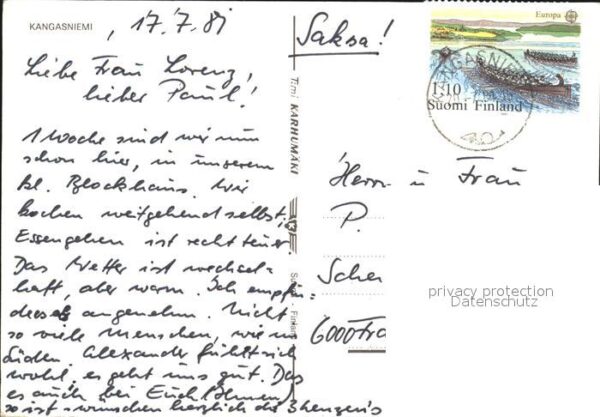 KANGASNIEMI
, 17.7.81
Saksa!
Europa
1:10
Suomi Finland
KANGASNIEMI
Liebe Frau Lorenz,
lieber Paul!
1 Woche sind wir nun
schon hier, in unserem
kl. Blockhaus. Wir
kochen weitgehend selbst,
Essengehen ist recht teuer.
Das Wetter ist wechsel-
haft, aber warm. Ich empfin-
de es angenehm. Nicht
so viele Menschen, wie im
Süden. Alexander fühlt sich
wohl, es geht uns gut. Das
es auch bei Euch (Ihnen)
so ist wünschen herzlich die
Toimi KARHUMÄKI
Finland
Herrn u Frau
P.
Scher
6000 Fra
privacy protection
Datenschutz